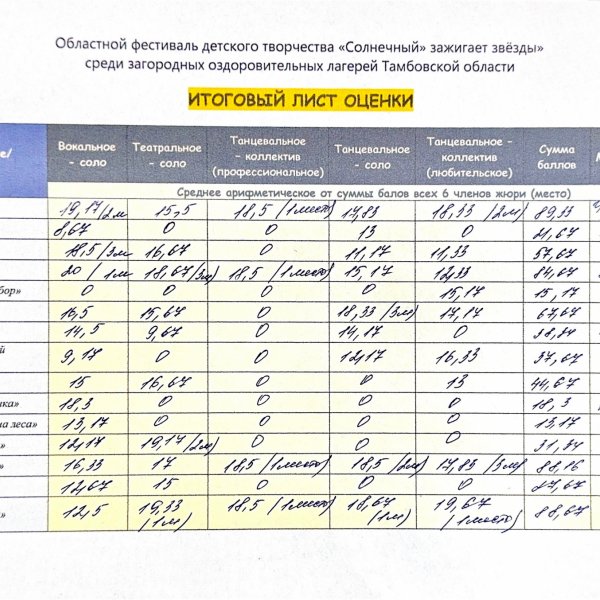 Областной фестиваль детского творчества «Солнечный» зажигает звёзды»
среди загородных оздоровительных лагерей Тамбовской области
ИТОГОВЫЙ ЛИСТ ОЦЕНКИ
е/ Вокальное - соло Театральное - соло Танцевальное - коллектив (профессиональное) Танцевальное - соло Танцевальное - коллектив (любительское) Сумма баллов
Среднее арифметическое от суммы балов всех 6 членов жюри (место)
19,17/2м 15,5 18,5 (1место) 17,83 18,33 (2м) 89,33
8,67 0 0 13 0 21,67
18,5/3м 16,67 0 11,17 11,33 57,67
20 / 1м 18,67/3м) 18,5 (1место) 15,17 12,33 84,67
бор» 0 0 0 0 15,17 15,17
16,5 15,67 0 18,33 /3м) 17,17 67,67
14,5 9,67 0 14,17 0 38,34
й 9,17 0 0 12,17 16,33 37,67
15 16,67 0 0 13 44,67
ка» 18,3 0 0 0 0 18,3
на леса» 13,17 0 0 0 0 13,17
» 12,17 19,17 /2м) 0 0 0 31,34
» 16,33 17 18,5 (1место) 18,5 /2м) 17,83 /3м) 88,16
12,67 15 0 0 0 27,67
» 12,5 19,33 (1м) 18,5 (1место) 18,67 (1м) 19,67 (1место) 88,67